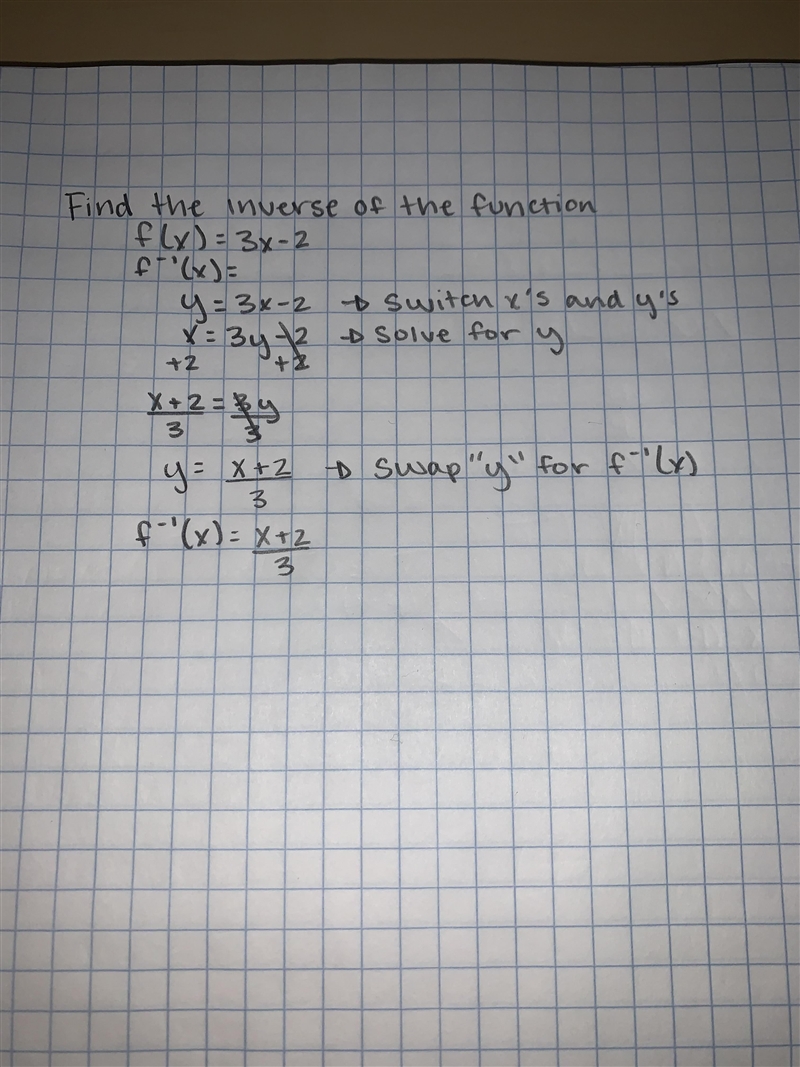 Find the inverse of the function
f(x) = 3x - 2
f⁻¹(x) =
y = 3x - 2 → Switch x's and y's
x = 3y - 2 → Solve for y
+2 +2
x + 2 = 3y
3 3
y = x + 2 → Swap "y" for f⁻¹(x)
3
f⁻¹(x) = x + 2
3